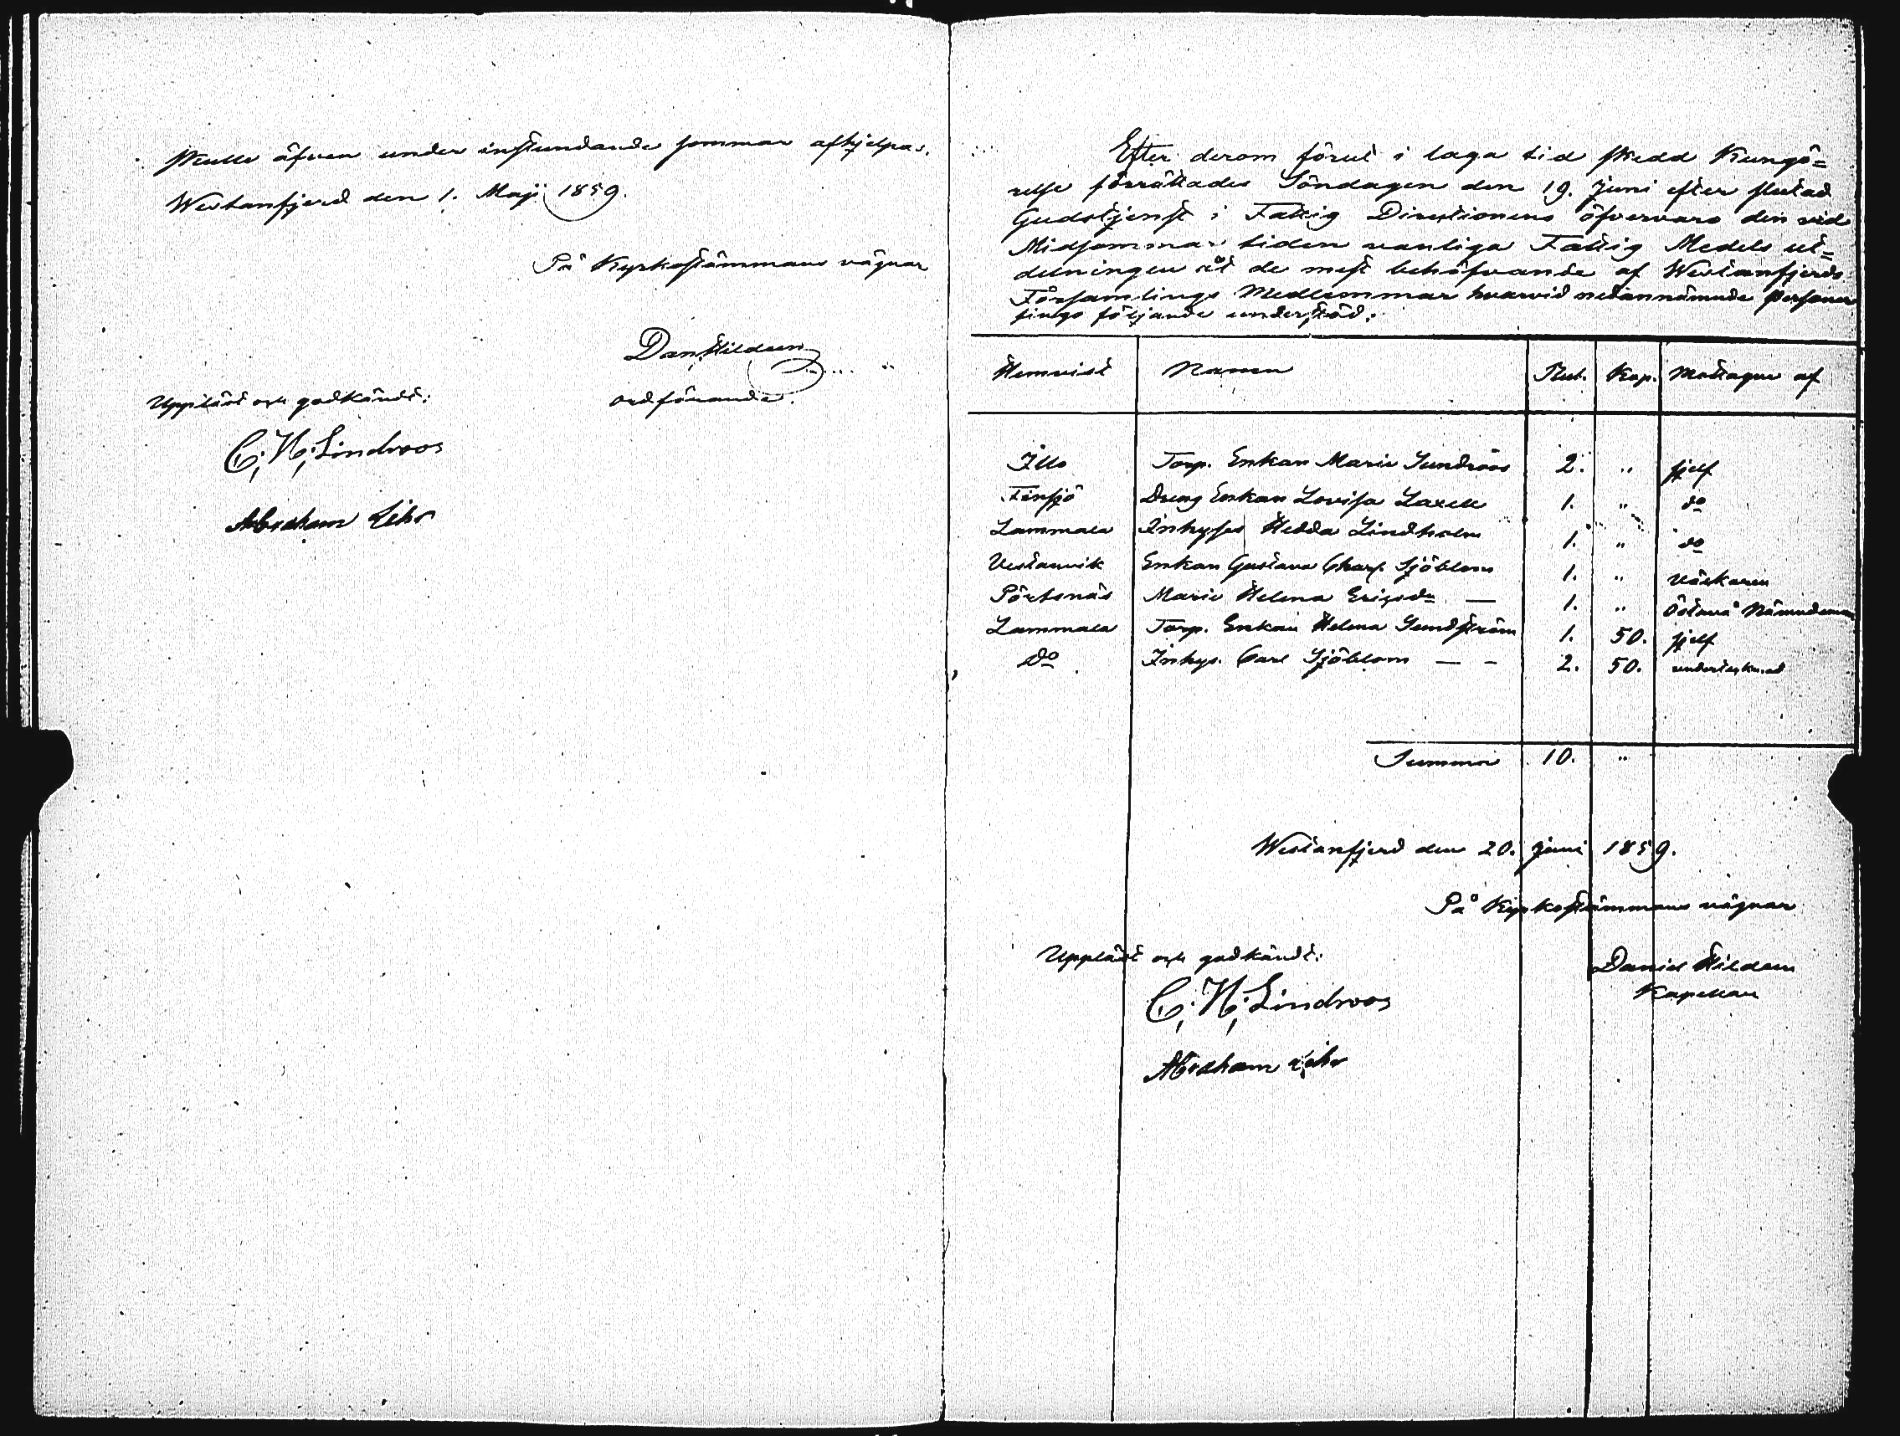 skulle äfven under instundande sommar afhjelpas.
Westanfjerd den 1. Maji 1859.
På Kyrkostämmans vägnar
Dan Hildeen
ordförande.
Uppläst och godkändt:
C. H. Lindroos
Abraham Lihr
Efter derom förut i laga tid skedd Kungö=
relse förrättades Söndagen den 19. Juni efter slutad
Gudstjenst i Fattig Direktionens öfvervaro den vid
Midsommars tiden vanliga Fattig Medels ut=
delningen åt de mest behöfvande af Westanfjerds
Församlings Medlemmar hvarvid nedannämnde personer
fingo följande understöd:
Hemvist Namn Rub. Kop. Mottagne af
Illo Torp. Enkan Maria Sundroos 2. " sjelf
Finsjö Dreng Enkan Lovisa Laxell 1. " do
Lammala Inhyses Hedda Lindholm 1. " do
Vestanvik Enkan Gustava Charl. Sjöblom 1. " Väktaren
Pörtsnäs Maria Helena Ericsdr — 1. " Östanå Nämndeman
Lammala Torp. Enkan Helena Sundström 1. 50. sjelf
Do Inhys. Carl Sjöblom — - 2. 50. undertecknad
Summa 10. "
Westanfjerd den 20. juni 1859.
På Kyrkostämmans vägnar
Uppläst och godkändt: Daniel Hildeen
Kapellan
C. H. Lindroos
Abraham Lihr